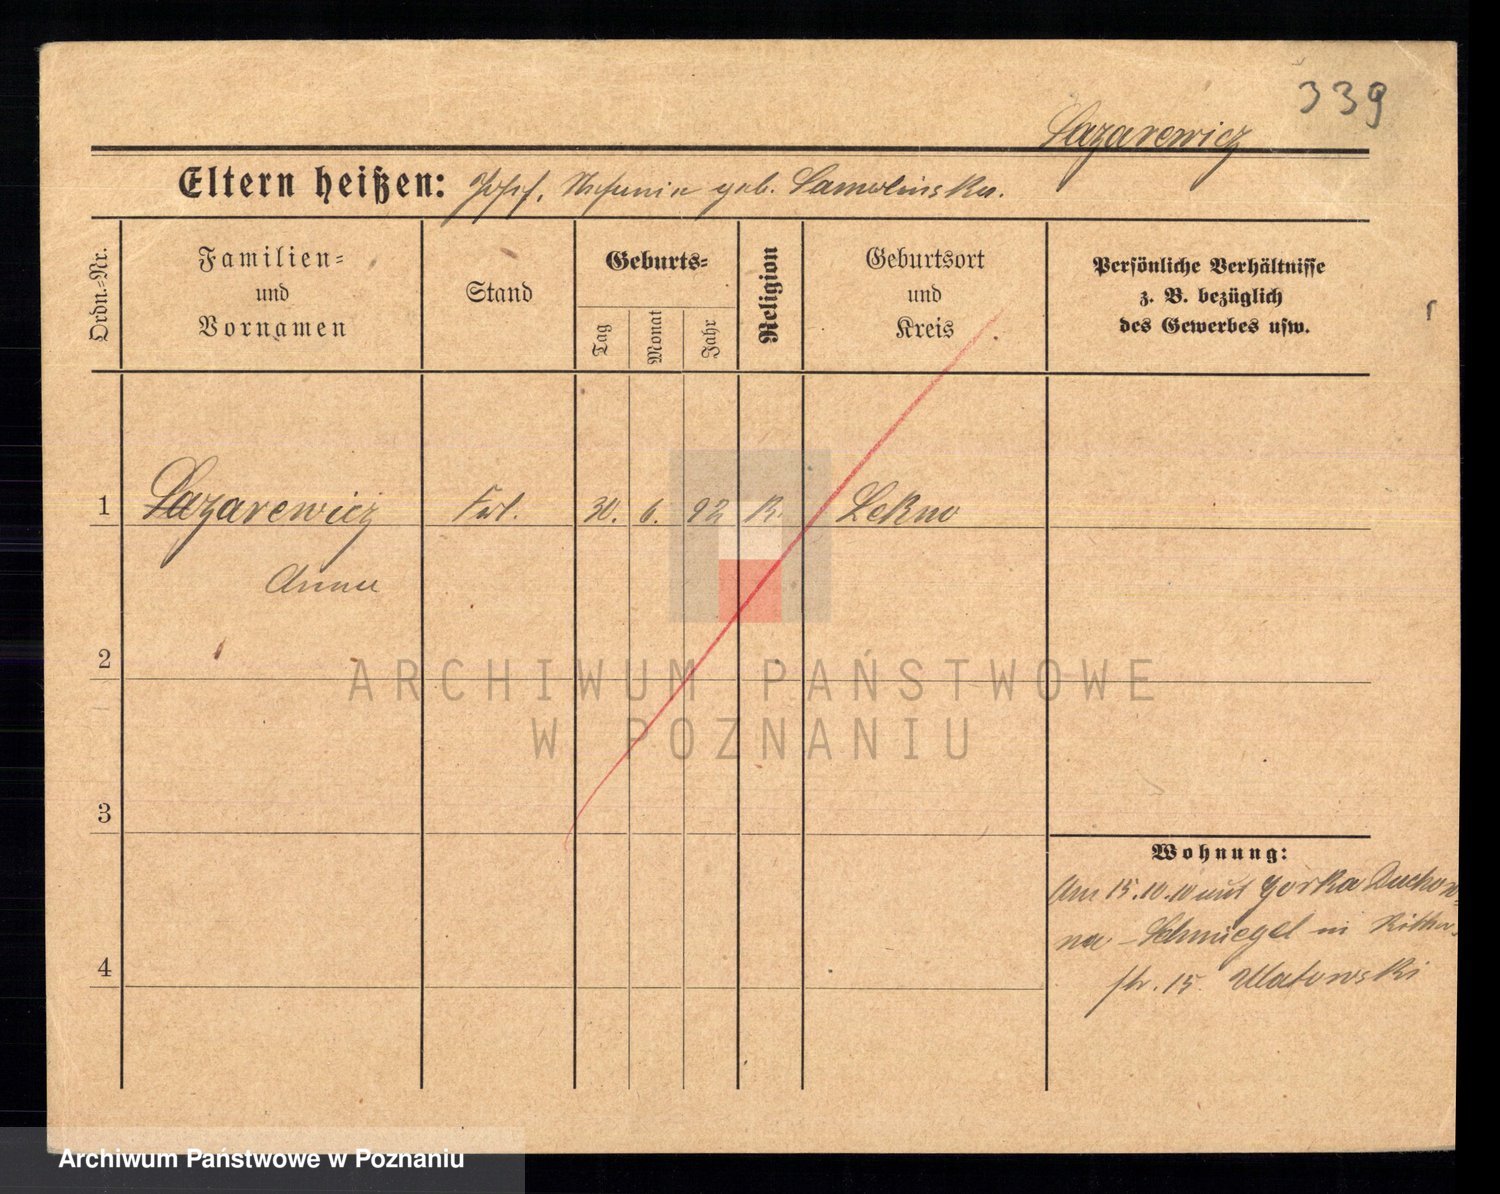 339
Lazarewicz
Eltern heißen: Josef, Stefania geb. Samolinska.
Ordn.-Nr.
Familien-
und
Vornamen
Stand
Geburts-
Tag
Monat
Jahr
Religion
Geburtsort
und
Kreis
Persönliche Verhältnisse
z. B. bezüglich
des Gewerbes usw.
1 Lazarewicz Frl. 30. 6. 92 K. Lekno
Anna
2
3
4
Wohnung:
Am 15.10.10 aus Gorka Duchow-
na - Schmiegel in Ritter-
str. 15
ARCHIWUM PAŃSTWOWE
W POZNANIU
Archiwum Państwowe w Poznaniu